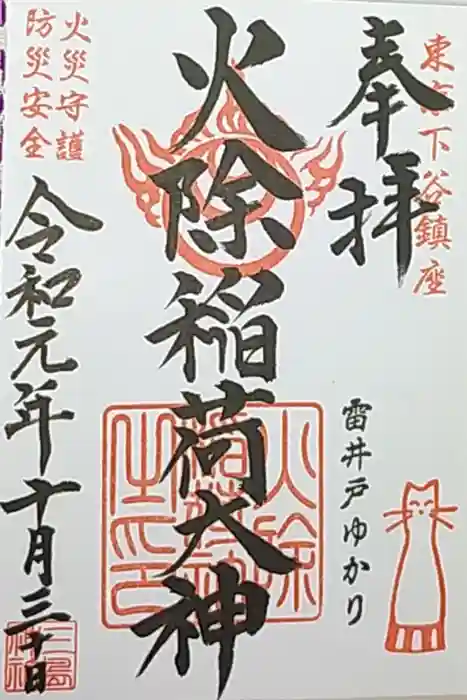 東京下谷鎮座
奉拝
雷井戸ゆかり
火除稲荷大神
火災守護
防災安全
令和元年十月三十日
三島神社